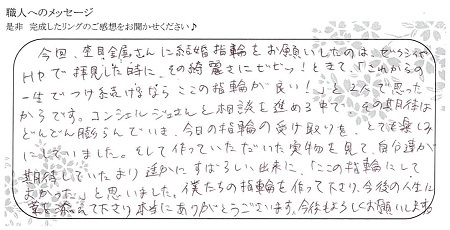 職人へのメッセージ
是非 完成したリングのご感想をお聞かせください♪
今回、杢目金屋さんに結婚指輪をお願いしたのは、ゼクシィや
HPで拝見した時に、その綺麗さにビビッ!ときて、「これからの
一生でつけ続けるならここの指輪が良い!」と2人で思った
からです。コンシェルジュさんと相談を進める中で、その期待は
どんどん膨らんでいき、今日の指輪の受け取りを、とても楽しみ
にしていました。そして作っていただいた実物を見て、自分達が
期待していたより遥かにすばらしい出来に、「この指輪にして
よかった」と思いました。僕たちの指輪を作って下さり、今後の人生に
華を添えて下さり本当にありがとうございます。今後もよろしくお願いします